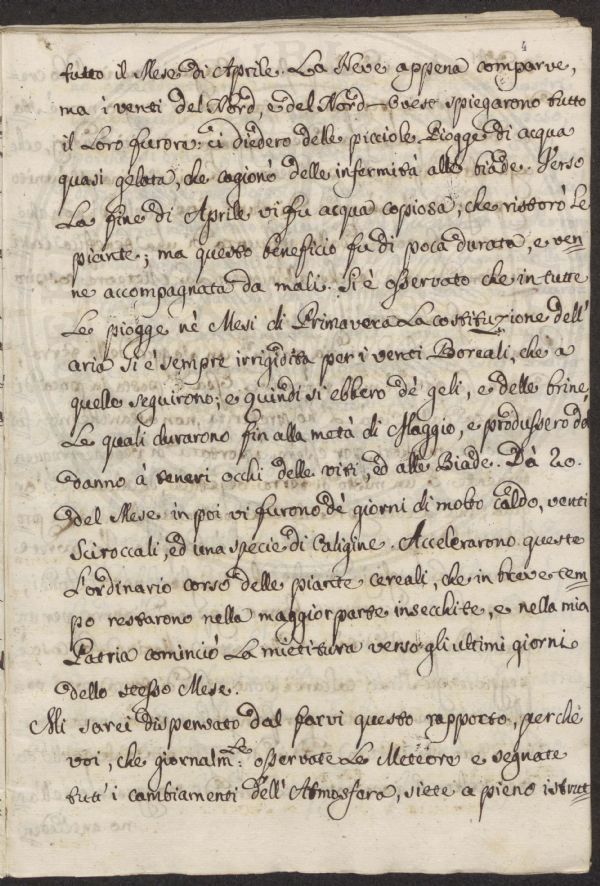 4
tutto il Mese di Aprile. La Neve appena comparve,
ma i venti del Nord, e del Nord-Ovest spiegarono tutto
il Loro furore: ci diedero delle picciole Piogge di acqua
quasi gelata, che cagionò delle infermità alle biade. Verso
La fine di Aprile vi fu acqua copiosa, che ristorò le
piante; ma questo beneficio fu di poca durata, e ven=
ne accompagnata da mali. Si è osservato che in tutte
Le piogge nè Mesi di Primavera La costituzione dell'
aria si è sempre irrigidita per i venti Boreali, che a
quelle seguirono; e quindi si ebbero dè geli, e delle brine,
Le quali durarono fin alla metà di Maggio, e produssero del
danno à teneri occhi delle viti, ed alle Biade. Dà 20.
del Mese in poi vi furono dè giorni di molto caldo, venti
Sciroccali, ed una specie di Caligine. Accelerarono queste
L'ordinario corso delle piante cereali, che in breve tem=
po restarono nella maggior parte insecchite, e nella mia
Patria cominciò La mietitura verso gli ultimi giorni
dello stesso Mese.
Mi sarei dispensato dal farvi questo rapporto, perchè
voi, che giornalm.te osservate Le Meteore e segnate
tutt'i cambiamenti dell'Atmosfera, siete a pieno istrut=